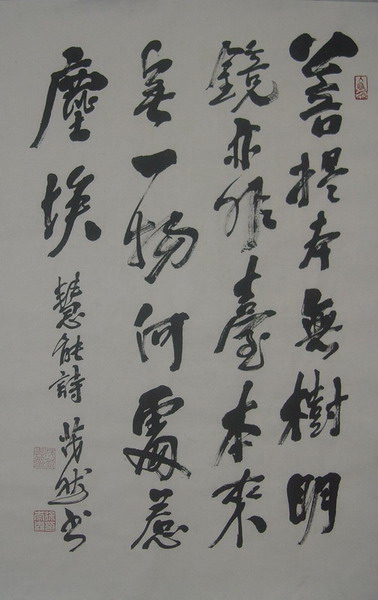 菩提本無樹明
鏡亦非臺本來
無一物何處惹
塵埃 慧能詩 书